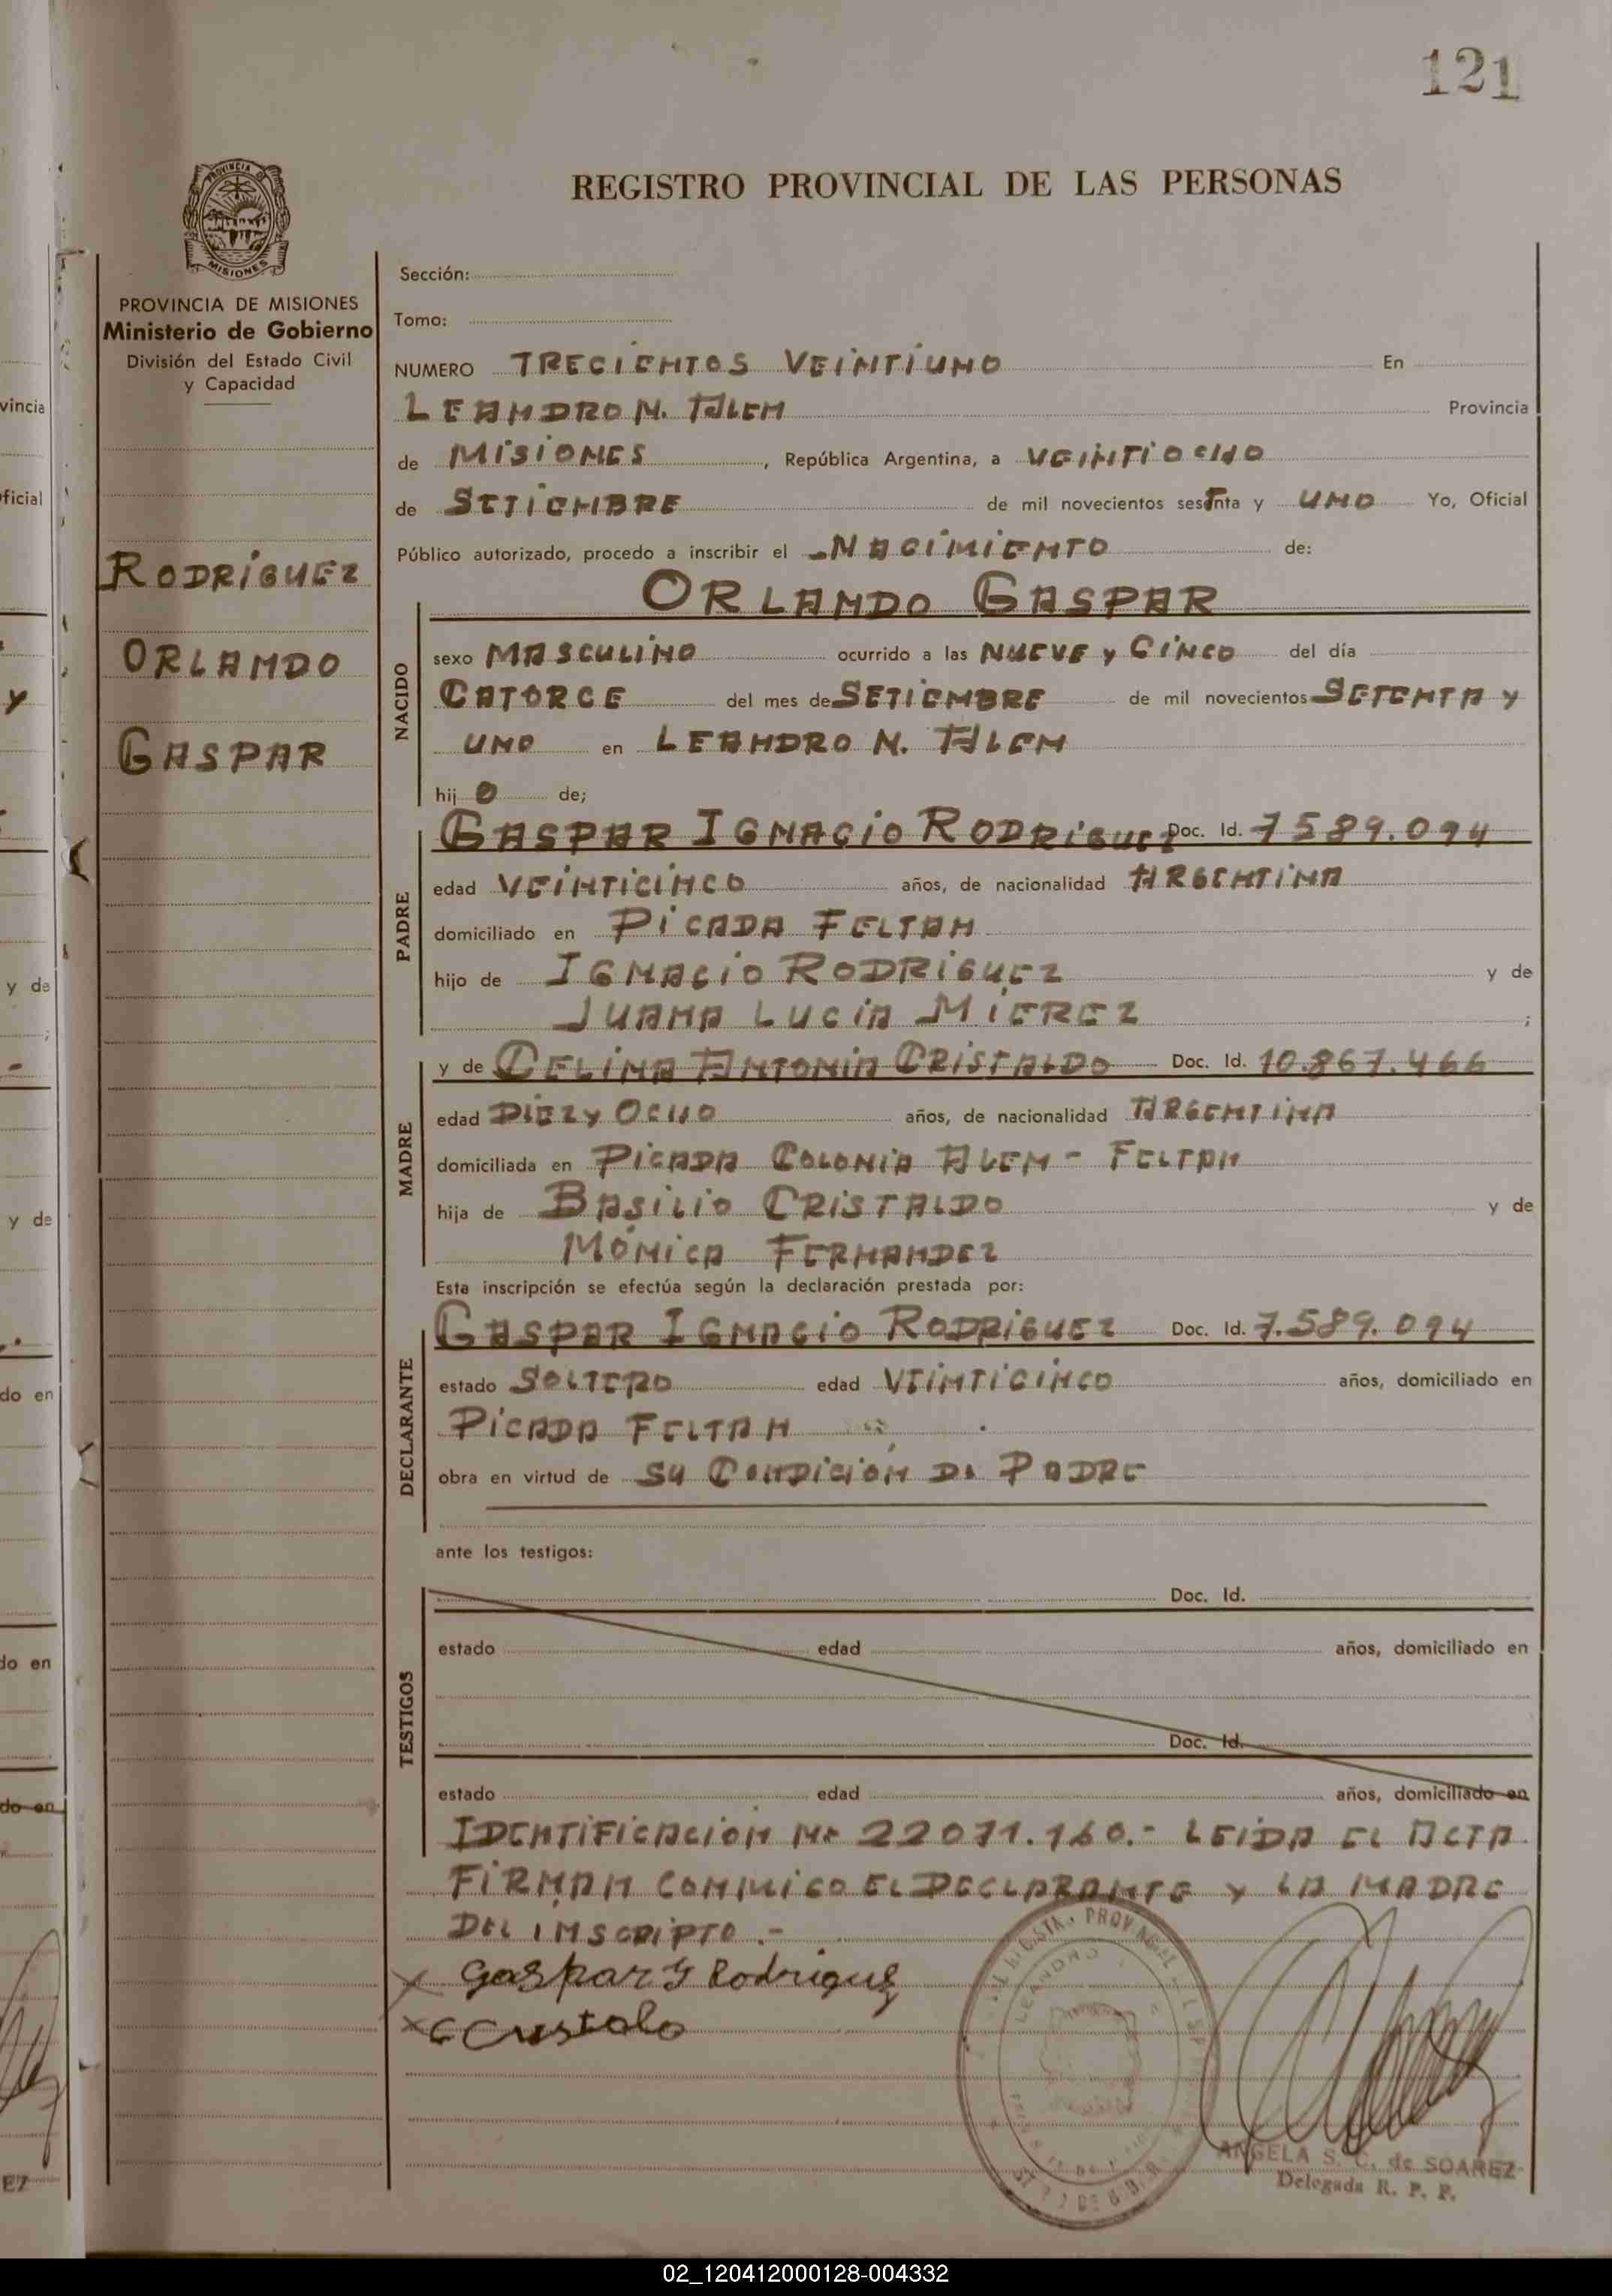 121
REGISTRO PROVINCIAL DE LAS PERSONAS
PROVINCIA DE MISIONES
Ministerio de Gobierno
División del Estado Civil
y Capacidad
RODRIGUEZ
ORLANDO
GASPAR
Sección:
Tomo:
NUMERO TRECIENTOS VEINTIUNO En
LEANDRO N. ALEM Provincia
de MISIONES, República Argentina, a VEINTIOCHO
de SETIEMBRE de mil novecientos sesTnta y UNO Yo, Oficial
Público autorizado, procedo a inscribir el NACIMIENTO de:
ORLANDO GASPAR
NACIDO
sexo MASCULINO ocurrido a las NUEVE y CINCO del día
CATORCE del mes de SETIEMBRE de mil novecientos SETENTA y
UNO en LEANDRO N. ALEM
hij O de;
PADRE
GASPAR IGNACIO RODRIGUEZ Doc. Id. 7589.094
edad VEINTICINCO años, de nacionalidad ARGENTINA
domiciliado en PICADA FELTAN
hijo de IGNACIO RODRIGUEZ y de
JUANA LUCIA MIEREZ ;
MADRE
y de CELINA ANTONIA CRISTALDO Doc. Id. 10.867.466
edad DIEZ y OCHO años, de nacionalidad ARGENTINA
domiciliada en PICADA COLONIA ALEM - FELTAN
hija de BASILIO CRISTALDO y de
MONICA FERNANDEZ
Esta inscripción se efectúa según la declaración prestada por:
DECLARANTE
GASPAR IGNACIO RODRIGUEZ Doc. Id. 7.589.094
estado SOLTERO edad VEINTICINCO años, domiciliado en
PICADA FELTAN
obra en virtud de SU CONDICION DE PADRE
ante los testigos:
TESTIGOS
Doc. Id.
estado edad años, domiciliado en
Doc. Id.
estado edad años, domiciliado en
IDENTIFICACION No 22071.160.- LEIDA EL ACTA
FIRMAN CONMIGO EL DECLARANTE y LA MADRE
DEL INSCRIPTO.-
x Gaspar Y Rodriguez
x C Cristalo
ANGELA S. C. de SOAREZ
Delegada R. P. P.
02_120412000128-004332